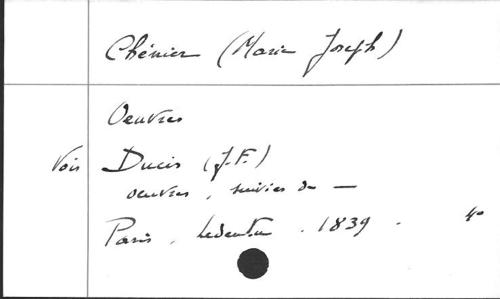 Chénier (Marie Joseph)
Oeuvres
Voir Ducis (J.F.)
oeuvres, suivies de —
Paris, Ledentu. 1839. 4°